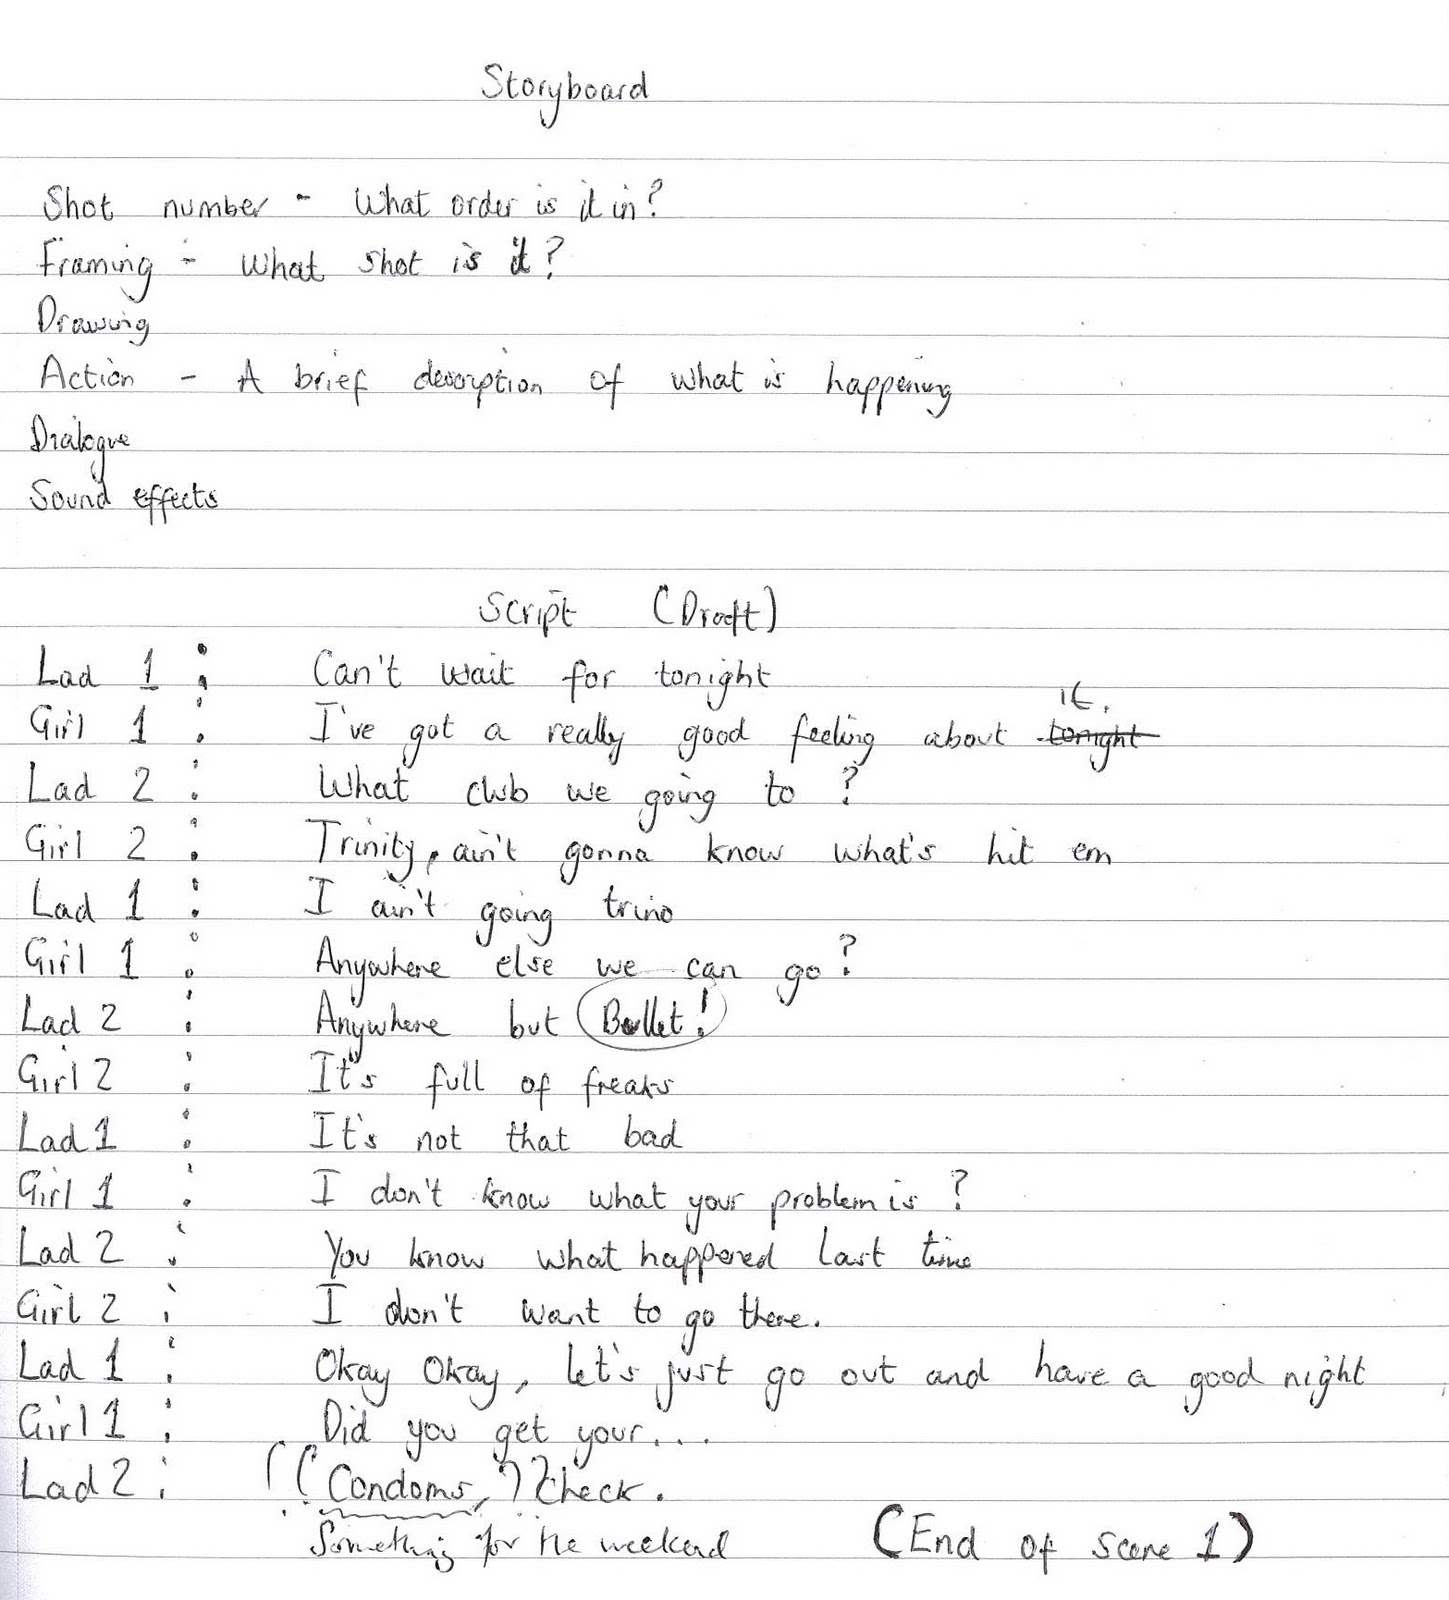 Storyboard
Shot number - What order is it in?
Framing - What shot is it?
Drawing
Action - A brief description of what is happening
Dialogue
Sound effects
Script (Draft)
Lad 1 : Can't wait for tonight
it.
Girl 1 : I've got a really good feeling about tonight
Lad 2 : What club we going to ?
Girl 2 : Trinity, ain't gonna know what's hit em
Lad 1 : I ain't going trino
Girl 1 : Anywhere else we can go?
Lad 2 : Anywhere but Bullet!
Girl 2 : It's full of freaks
Lad 1 : It's not that bad
Girl 1 : I don't know what your problem is ?
Lad 2 : You know what happened last time
Girl 2 : I don't want to go there.
Lad 1 : Okay Okay, let's just go out and have a good night
Girl 1 : Did you get your...
Lad 2 : ((Condoms,)) Check.
Something for the weekend (End of scene 1)